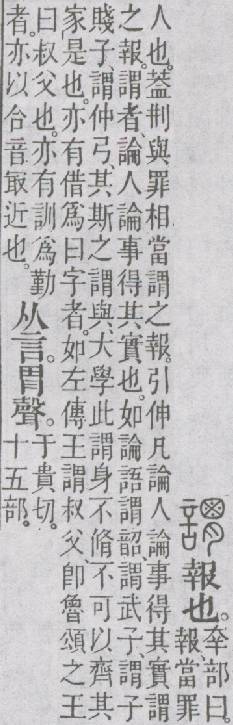 謂報也。㚔部曰
報、當罪
人也。葢刑與罪相當謂之報。引伸凡論人論事得其實謂
之報。謂者、論人論事得其實也。如論語謂韶、謂武子、謂子
賤子、謂仲弓、其斯之謂與、大學此謂身不脩不可以齊其
家是也。亦有借爲曰字者。如左傳王謂叔父、卽魯頌之王
曰叔父也。亦有訓爲勤
者。亦以合音冣近也。
从言。胃聲。于貴切。
十五部。